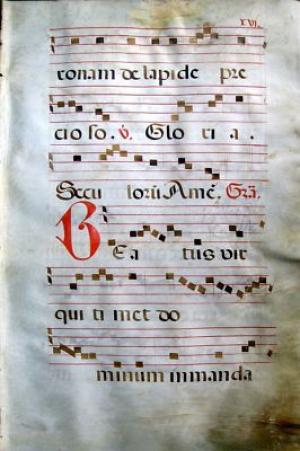 xvj
ronam de lapide pre
cioso. ℣. Glo ri a.
Secu lorū Amē. Gra̅.
Be a tus vir
qui ti met do
minum in manda